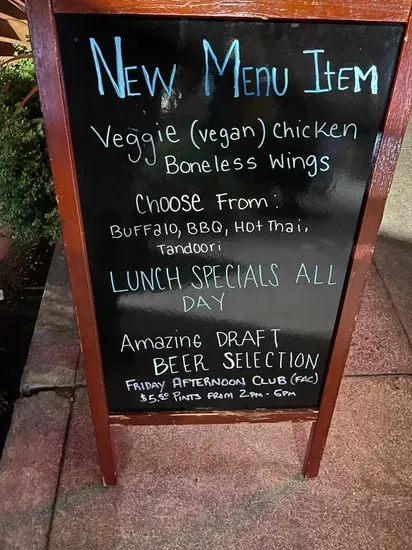 New Menu Item
Veggie (vegan) chicken
Boneless Wings
Choose From:
Buffalo, BBQ, Hot Thai,
Tandoori
LUNCH SPECIALS ALL
DAY
Amazing DRAFT
BEER SELECTION
FRIDAY AFTERNOON CLUB (FAC)
$5.50 PINTS FROM 2PM - 6PM